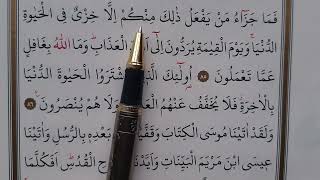 فَمَا جَزَآءُ مَنْ يَّفْعَلُ ذٰلِكَ مِنْكُمْ اِلَّا خِزْىٌ فِى الْحَيٰوةِ
الدُّنْيَاۚ وَيَوْمَ الْقِيٰمَةِ يُرَدُّوْنَ اِلٰٓى الْعَذَابِؕ وَمَا اللّٰهُ بِغَافِلٍ
عَمَّا تَعْمَلُوْنَ ٨٥ اُولٰٓئِكَ اشْتَرَوُا الْحَيٰوةَ الدُّنْيَا
بِالْاٰخِرَةِؗ فَلَا يُخَفَّفُ عَنْهُمُ وَلَا هُمْ يُنْصَرُوْنَ ٨٦
وَلَقَدْ اٰتَيْنَا مُوسَى الْكِتَابَ بَعْدِهٖ بِالرُّسُلِ وَاٰتَيْنَا
عِيسَى ابْنَ مَرْيَمَ الْبَيِّنَاتِ الْقُدُسِؕ اَفَكُلَّمَا